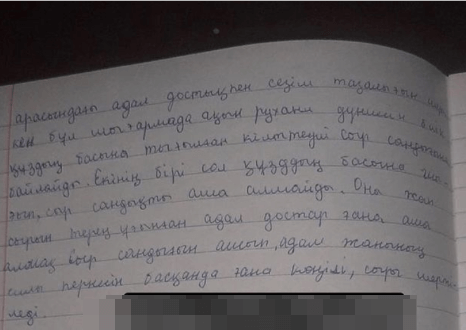 арасындағы адал достықпен сезім тазалығын
кен бұл шығармада ақын рухани дүниесін биік
құздың басына тығылған кілттеулі сыр сандығына
байлайды. Екінің бірі сол құздың басына шы-
ғып, сыр сандықты аша алмайды. Оны жан
сырын терең ұғынған адал достар ғана аша
алмақ. Сыр сандығын ашып, адам жанының
пернесін басқанда ғана көңілі, сыры шерті-
леді.